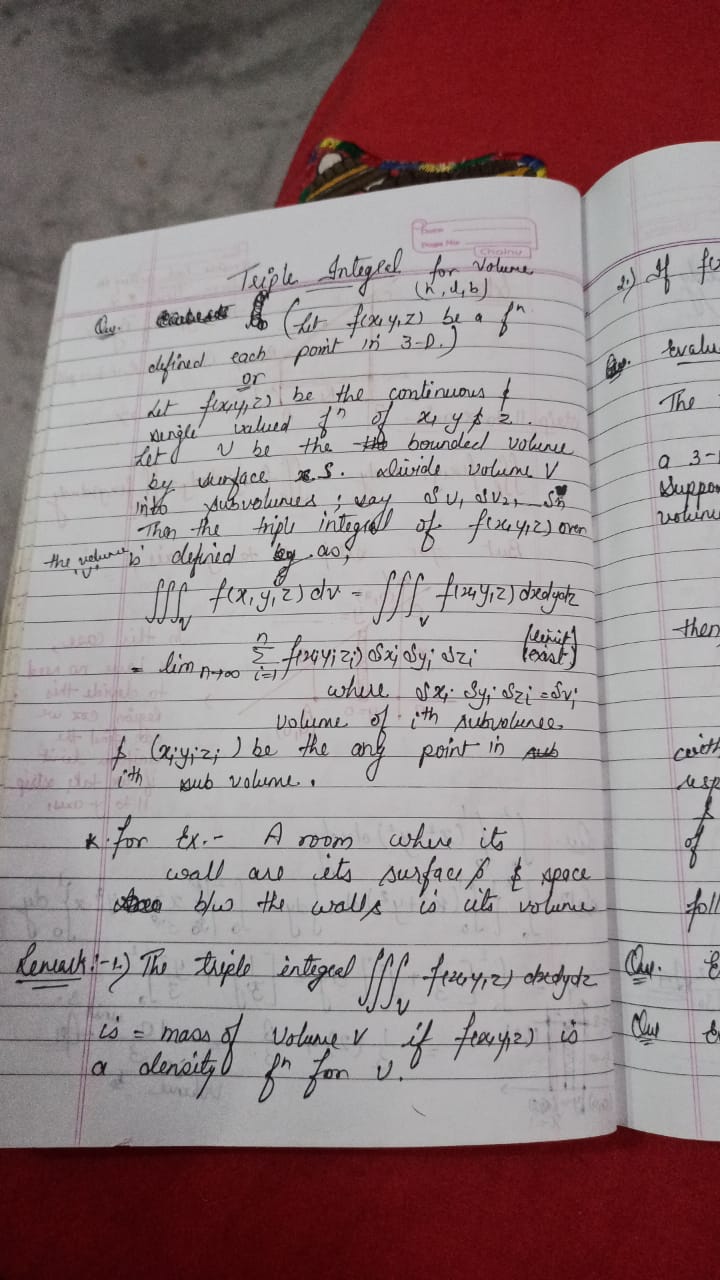 Date
Page No.
Triple Integral for volume
(h, l, b)
Que. (Let f(x,y,z) be a fⁿ
defined each point in 3-D.)
or
Let f(x,y,z) be the continuous &
single valued fⁿ of x, y & z.
Let V be the bounded volume
by surface S. divide volume V
into subvolumes; say δv₁, δv₂,
Then the triple integral of f(x,y,z) over
the volume 'V' is defined as,
∭ᵥ f(x,y,z) dv = ∭ᵥ f(x,y,z) dxdydz
= lim n→∞ Σ i=1 n f(xᵢyᵢzᵢ) δxᵢ δyᵢ δzᵢ (limit exist)
where δxᵢ δyᵢ δzᵢ = δvᵢ
volume of ith subvolume
& (xᵢyᵢzᵢ) be the any point in
ith sub volume.
* for Ex.- A room where its
wall are its surface & space
b/w the walls is its volume
Remark:-1.) The triple integral ∭ᵥ f(x,y,z) dxdydz
is = mass of volume V if f(x,y,z) is
a density fⁿ for v.
2.) If
Que. Evalu
The
a 3-
Suppo
volume
then
with
resp
&
of
foll
Que. E
Que